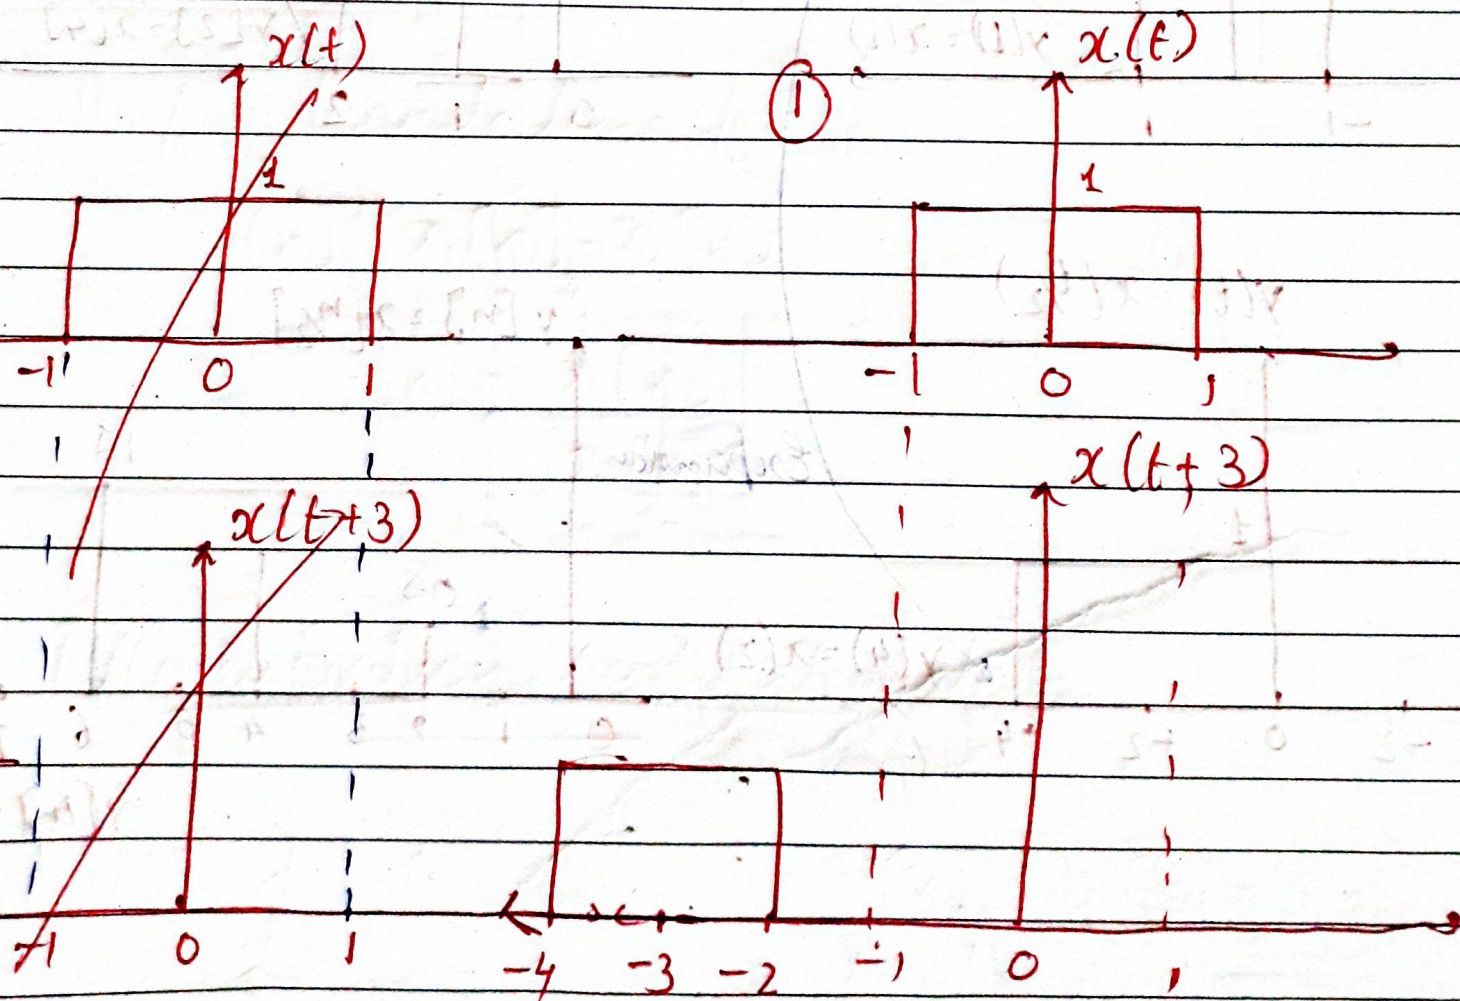 x(t)
2
1
-1 0 1
x(t+3)
-1 0 1
① x(t)
1
-1 0 1
x(t+3)
-4 -3 -2 -1 0 1